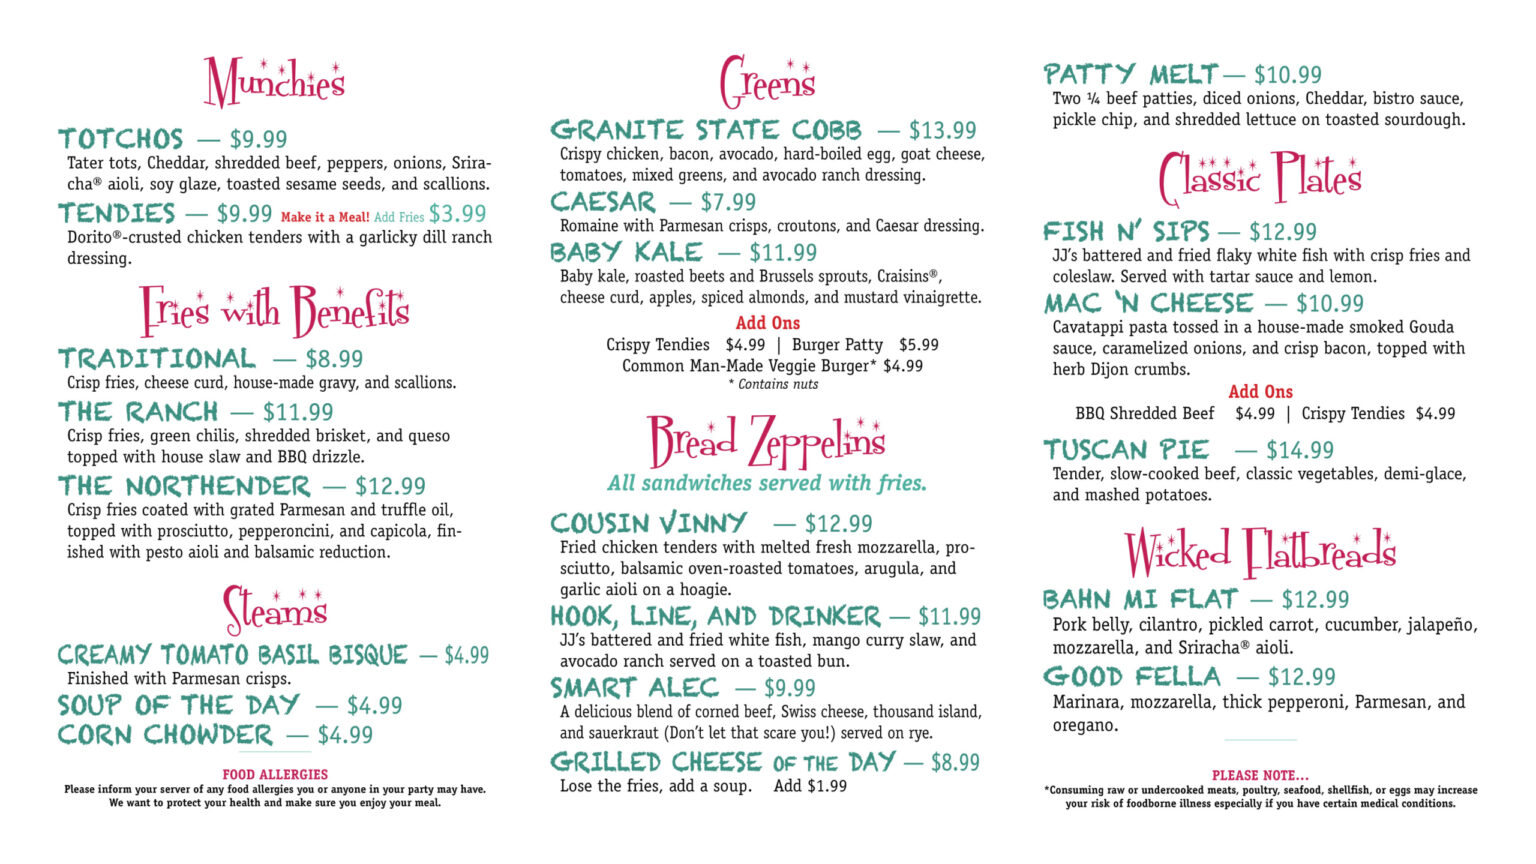 Munchies
TOTCHOS — $9.99
Tater tots, Cheddar, shredded beef, peppers, onions, Srira-
cha® aioli, soy glaze, toasted sesame seeds, and scallions.
TENDIES — $9.99 Make it a Meal! Add Fries $3.99
Dorito®-crusted chicken tenders with a garlicky dill ranch
dressing.
Fries with Benefits
TRADITIONAL — $8.99
Crisp fries, cheese curd, house-made gravy, and scallions.
THE RANCH — $11.99
Crisp fries, green chilis, shredded brisket, and queso
topped with house slaw and BBQ drizzle.
THE NORTHENDER — $12.99
Crisp fries coated with grated Parmesan and truffle oil,
topped with prosciutto, pepperoncini, and capicola, fin-
ished with pesto aioli and balsamic reduction.
Steams
CREAMY TOMATO BASIL BISQUE — $4.99
Finished with Parmesan crisps.
SOUP OF THE DAY — $4.99
CORN CHOWDER — $4.99
FOOD ALLERGIES
Please inform your server of any food allergies you or anyone in your party may have.
We want to protect your health and make sure you enjoy your meal.
Greens
GRANITE STATE COBB — $13.99
Crispy chicken, bacon, avocado, hard-boiled egg, goat cheese,
tomatoes, mixed greens, and avocado ranch dressing.
CAESAR — $7.99
Romaine with Parmesan crisps, croutons, and Caesar dressing.
BABY KALE — $11.99
Baby kale, roasted beets and Brussels sprouts, Craisins®,
cheese curd, apples, spiced almonds, and mustard vinaigrette.
Add Ons
Crispy Tendies $4.99 | Burger Patty $5.99
Common Man-Made Veggie Burger* $4.99
* Contains nuts
Bread Zeppelins
All sandwiches served with fries.
COUSIN VINNY — $12.99
Fried chicken tenders with melted fresh mozzarella, pro-
sciutto, balsamic oven-roasted tomatoes, arugula, and
garlic aioli on a hoagie.
HOOK, LINE, AND DRINKER — $11.99
JJ's battered and fried white fish, mango curry slaw, and
avocado ranch served on a toasted bun.
SMART ALEC — $9.99
A delicious blend of corned beef, Swiss cheese, thousand island,
and sauerkraut (Don't let that scare you!) served on rye.
GRILLED CHEESE OF THE DAY — $8.99
Lose the fries, add a soup. Add $1.99
PATTY MELT — $10.99
Two ¼ beef patties, diced onions, Cheddar, bistro sauce,
pickle chip, and shredded lettuce on toasted sourdough.
Classic Plates
FISH N' SIPS — $12.99
JJ's battered and fried flaky white fish with crisp fries and
coleslaw. Served with tartar sauce and lemon.
MAC 'N CHEESE — $10.99
Cavatappi pasta tossed in a house-made smoked Gouda
sauce, caramelized onions, and crisp bacon, topped with
herb Dijon crumbs.
Add Ons
BBQ Shredded Beef $4.99 | Crispy Tendies $4.99
TUSCAN PIE — $14.99
Tender, slow-cooked beef, classic vegetables, demi-glace,
and mashed potatoes.
Wicked Flatbreads
BAHN MI FLAT — $12.99
Pork belly, cilantro, pickled carrot, cucumber, jalapeño,
mozzarella, and Sriracha® aioli.
GOOD FELLA — $12.99
Marinara, mozzarella, thick pepperoni, Parmesan, and
oregano.
PLEASE NOTE...
*Consuming raw or undercooked meats, poultry, seafood, shellfish, or eggs may increase
your risk of foodborne illness especially if you have certain medical conditions.